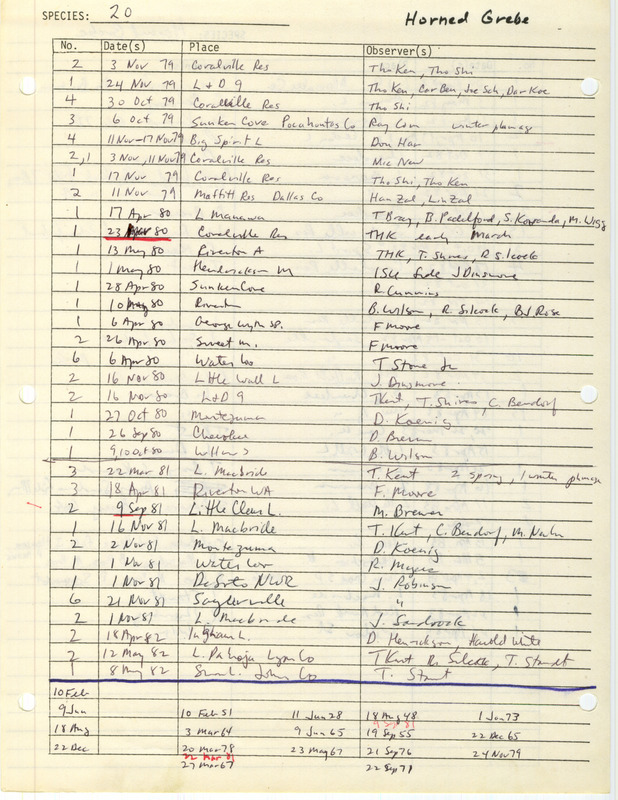 SPECIES: 20 Horned Grebe
No. Date(s) Place Observer(s)
2 3 Nov 79 Coralville Res Tho Ken, Tho Shi
1 24 Nov 79 L + D 9 Tho Ken, Car Ben, Joe Sch, Dar Koe
4 30 Oct 79 Coralville Res Tho Shi
3 6 Oct 79 Sunken Cove Pocahontas Co Ray Cum winter plumage
4 11 Nov-17 Nov 79 Big Spirit L Don Har
2,1 3 Nov, 11 Nov 79 Coralville Res Mic New
1 17 Nov 79 Coralville Res Tho Shi, Tho Ken
2 11 Nov 79 Maffitt Res Dallas Co Han Zal, Lin Zal
1 17 Apr 80 L Manawa T Bray, B. Padelford, S. Kovanda, M. Wigg
1 23 Mar 80 Coralville Res THK early March
1 13 May 80 Riverton A THK, T. Shires, R Silcock
1 1 May 80 M J Dinsmore
1 28 Apr 80 Sunken Cove R. Cummins
1 10 May 80 Riverton B. Wilson, R. Silcock, BJ Rose
1 6 Apr 80 George Wyth SP. F Moore
2 26 Apr 80 Sweet M. F Moore
6 6 Apr 80 Water Loo T Stone Jr
2 16 Nov 80 Little Wall L J. Dinsmore
2 16 Nov 80 L+D 9 TKent, T. Shires, C. Bendorf
1 27 Oct 80 Montezuma D. Koenig
1 26 Sep 80 Cherokee D. Brewer
1 9,10 Oct 80 Willow S B. Wilson
3 22 Mar 81 L. MacBride T. Kent 2 spring, 1 winter plumage
3 18 Apr 81 Riverton WA F. Moore
2 9 Sep 81 Little Clear L. M. Brewer
1 16 Nov 81 L. Macbride T. Kent, C. Bendorf, M. Newlon
2 2 Nov 81 Montezuma D. Koenig
1 1 Nov 81 Water Loo R. Myers
1 1 Nov 81 DeSoto NWR J. Robinson
6 21 Nov 81 Saylorville "
2 1 Nov 81 L. Macbride J. Sandrock
2 18 Apr 82 Ingham L. D. Henrickson, Harold White
2 12 May 82 L. Pahoja Lyon Co TKent R. Silcock, T. Staudt
1 8 Aug 82 John Co T. Staudt
10 Feb
9 Jun 10 Feb 51 11 Jun 28 18 Aug 48 1 Jan 73
9 Sep 81
18 Aug 3 Mar 64 9 Jun 65 19 Sep 55 22 Dec 65
22 Dec 20 Mar 78 23 May 67 21 Sep 76 24 Nov 79
22 Mar 81
27 Mar 67 22 Sep 71